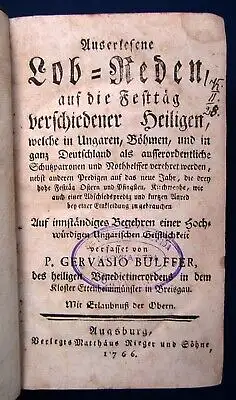 Auserlesene
Lob-Reden,
auf die Festtäg
verschiedener Heiligen,
welche in Ungaren, Böhmen, und in
ganz Deutschland als ausserordentliche
Schutzpatronen und Nothhelfer verehret werden,
nebst anderen Predigen auf das neue Jahr, die drey
hohe Festtäg Ostern und Pfingsten, Kirchweyhe, wie
auch einer Abschiedspredig und kurzen Anred
bey einer Einkleidung zu gebrauchen.
Auf innständiges Begehren einer Hoch-
würdigen Ungarischen Geistlichkeit
verfasset von
P. GERVASIO BULFFER,
des heiligen Benedictinerordens in dem
Kloster Ettenheimmünster in Breisgau.
Mit Erlaubnuß der Obern.
Augsburg,
Verlegts Matthäus Rieger und Söhne,
1766.